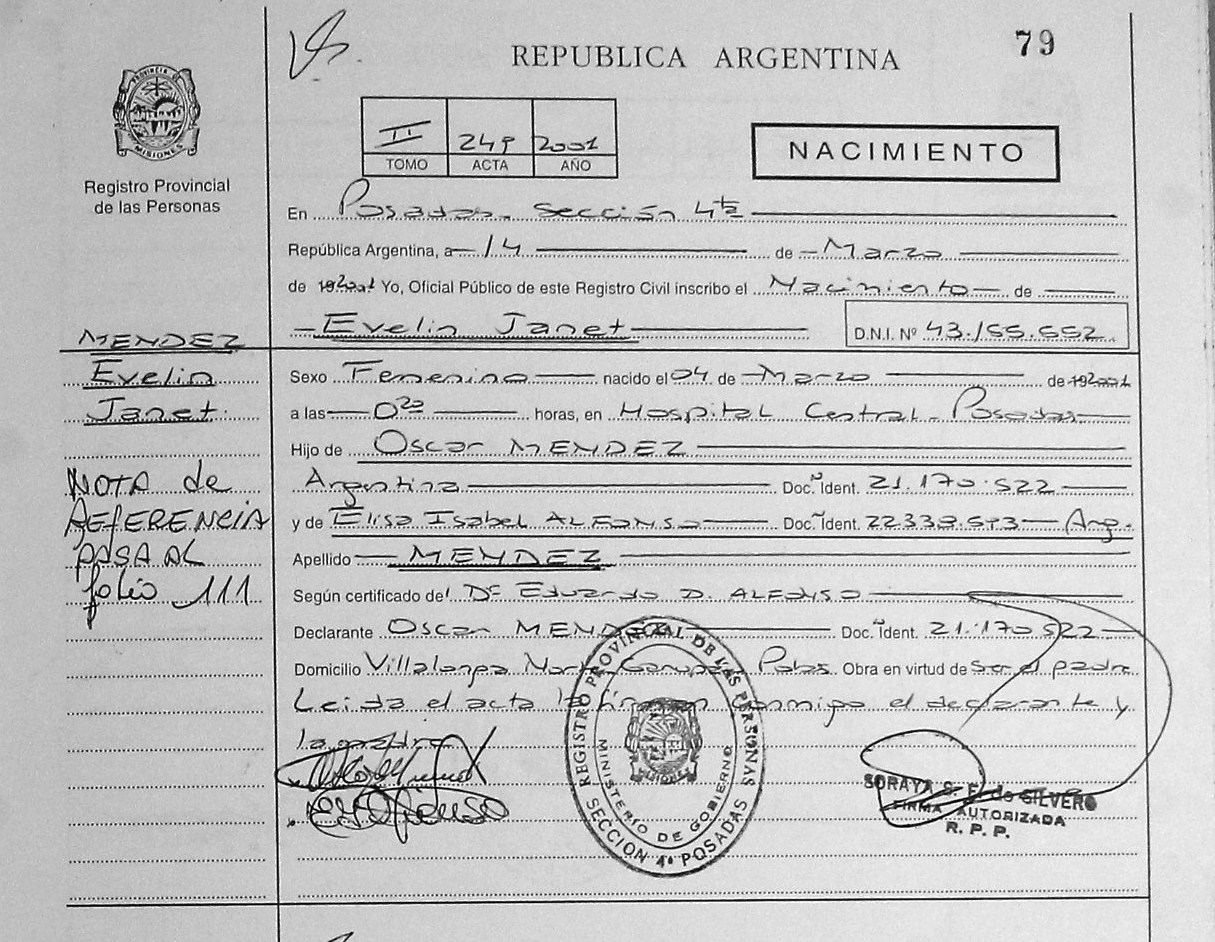 79
REPUBLICA ARGENTINA
PROVINCIA DE MISIONES
Registro Provincial
de las Personas
II 249 2001
TOMO ACTA AÑO
NACIMIENTO
En Posadas. Sección 4ta
República Argentina, a 14 de Marzo
de 2001 Yo, Oficial Público de este Registro Civil inscribo el Nacimiento de
Evelin Janet D.N.I. Nº 43.155.552
MENDEZ
Evelin
Janet.
Sexo Femenino nacido el 04 de Marzo de 2001
a las 0 20 horas, en Hospital Central - Posadas
Hijo de Oscar MENDEZ
Argentina Doc. Ident. 21.170.522
y de Elisa Isabel ALFONSO Doc. Ident. 22.338.593 Arg.
Apellido MENDEZ
Según certificado del Dr Eduardo D. ALFONSO
Declarante Oscar MENDEZ Doc. Ident. 21.170.522
Domicilio Villalonga Norte, Garupá Pdas. Obra en virtud de ser el padre
Leida el acta la firman conmigo el declarante y
la madre
NOTA de
REFERENCIA
PASA AL
folio 111
REGISTRO PROVINCIAL DE LAS PERSONAS
MINISTERIO DE GOBIERNO
SECCION 4ª POSADAS
SORAYA S. F. de SILVERO
FIRMA AUTORIZADA
R. P. P.